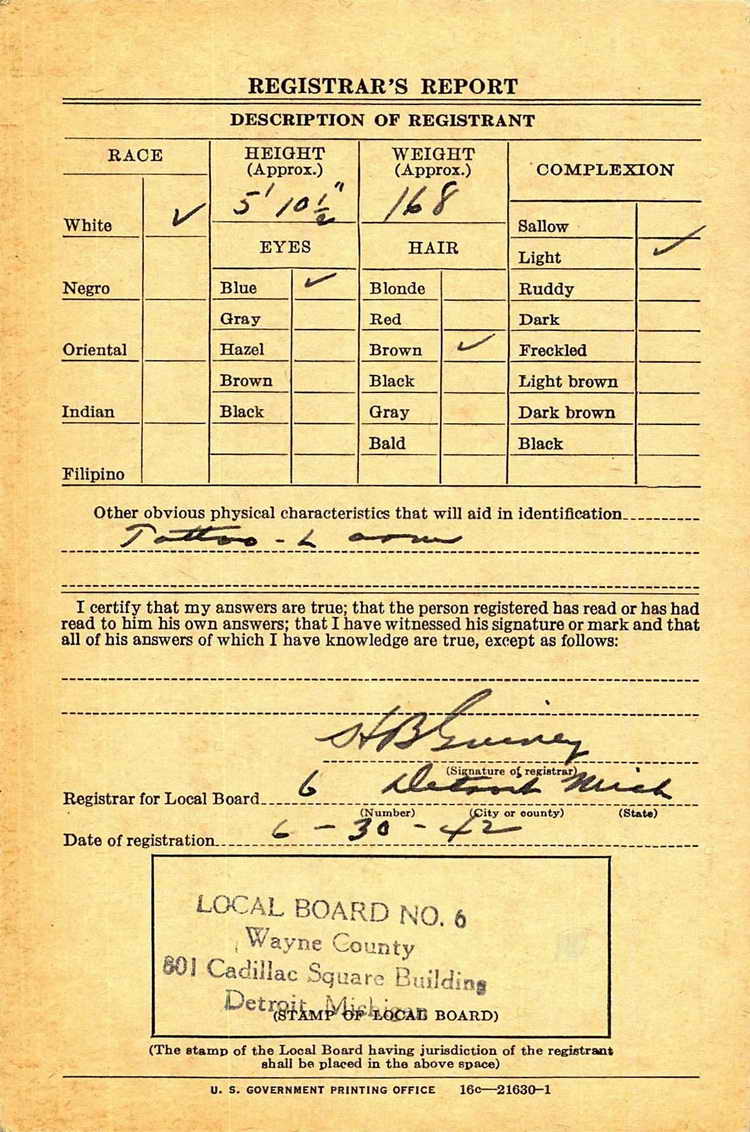 REGISTRAR'S REPORT
DESCRIPTION OF REGISTRANT
RACE
HEIGHT
(Approx.)
WEIGHT
(Approx.)
COMPLEXION
5' 10 1/2"
168
White ✓
Sallow
EYES
HAIR
Light ✓
Negro
Blue ✓
Blonde
Ruddy
Gray
Red
Dark
Oriental
Hazel
Brown ✓
Freckled
Brown
Black
Light brown
Indian
Black
Gray
Dark brown
Bald
Black
Filipino
Other obvious physical characteristics that will aid in identification
Tattoo - L arm
I certify that my answers are true; that the person registered has read or has had
read to him his own answers; that I have witnessed his signature or mark and that
all of his answers of which I have knowledge are true, except as follows:
H B
(Signature of registrar)
Registrar for Local Board 6 Detroit Mich
(Number) (City or county) (State)
Date of registration 6 - 30 - 42
LOCAL BOARD NO. 6
Wayne County
801 Cadillac Square Building
Detroit, Michigan
(STAMP OF LOCAL BOARD)
(The stamp of the Local Board having jurisdiction of the registrant
shall be placed in the above space)
U. S. GOVERNMENT PRINTING OFFICE 16c—21630-1